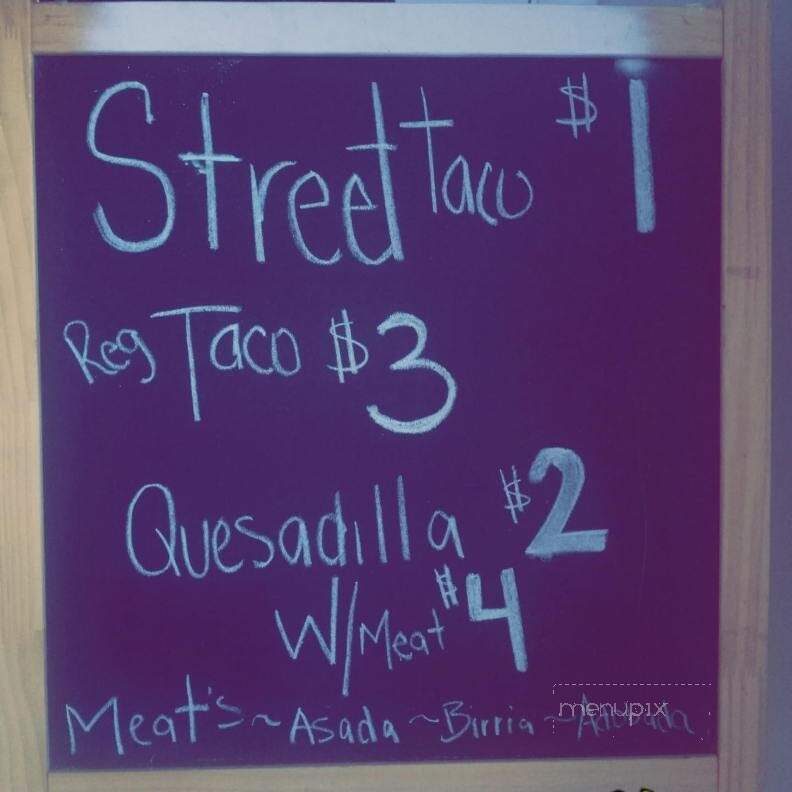 Street Taco $1
Reg Taco $3
Quesadilla $2
W/Meat $4
Meat's ~ Asada ~ Birria ~
menupix